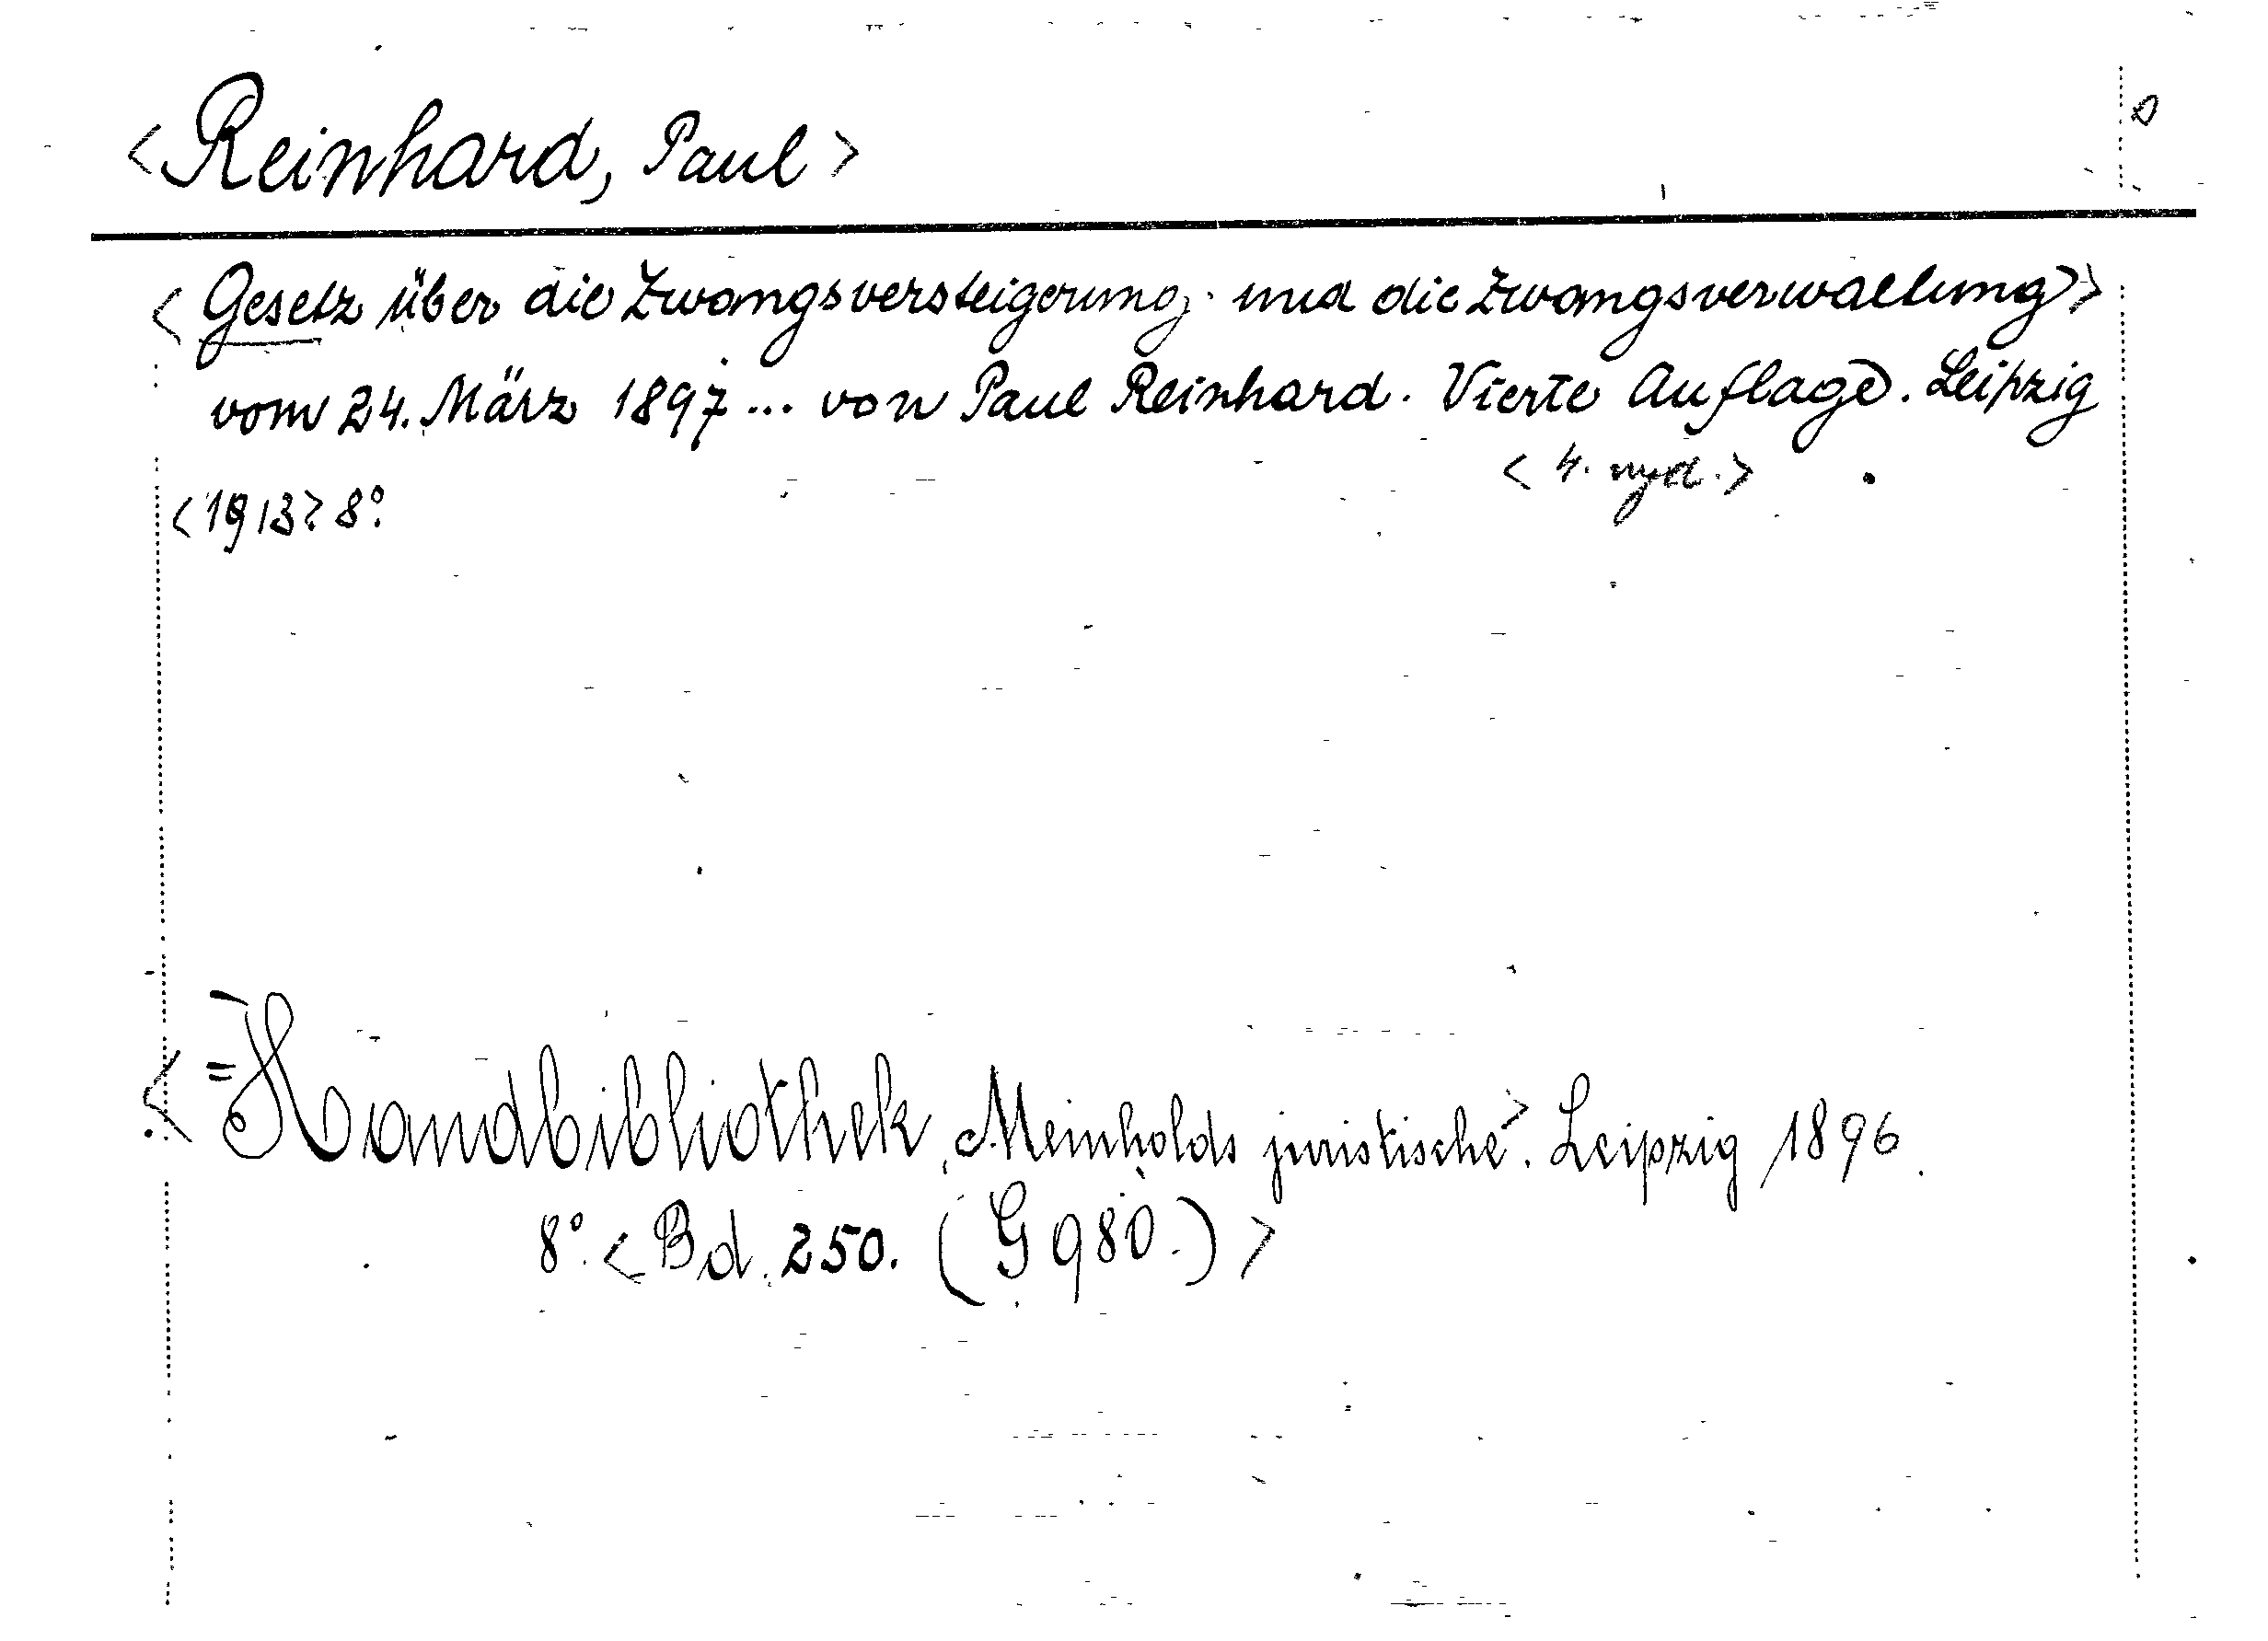 <Reinhard, Paul>
<Gesetz über die Zwangsversteigerung und die Zwangsverwaltung>
vom 24. März 1897 ... von Paul Reinhard. Vierte Auflage. Leipzig
<4. nyd.>
<1913> 8°.
<= Handbibliothek, Meinholds juristische>. Leipzig 1896.
8°. <Bd. 250. (G 980.)>